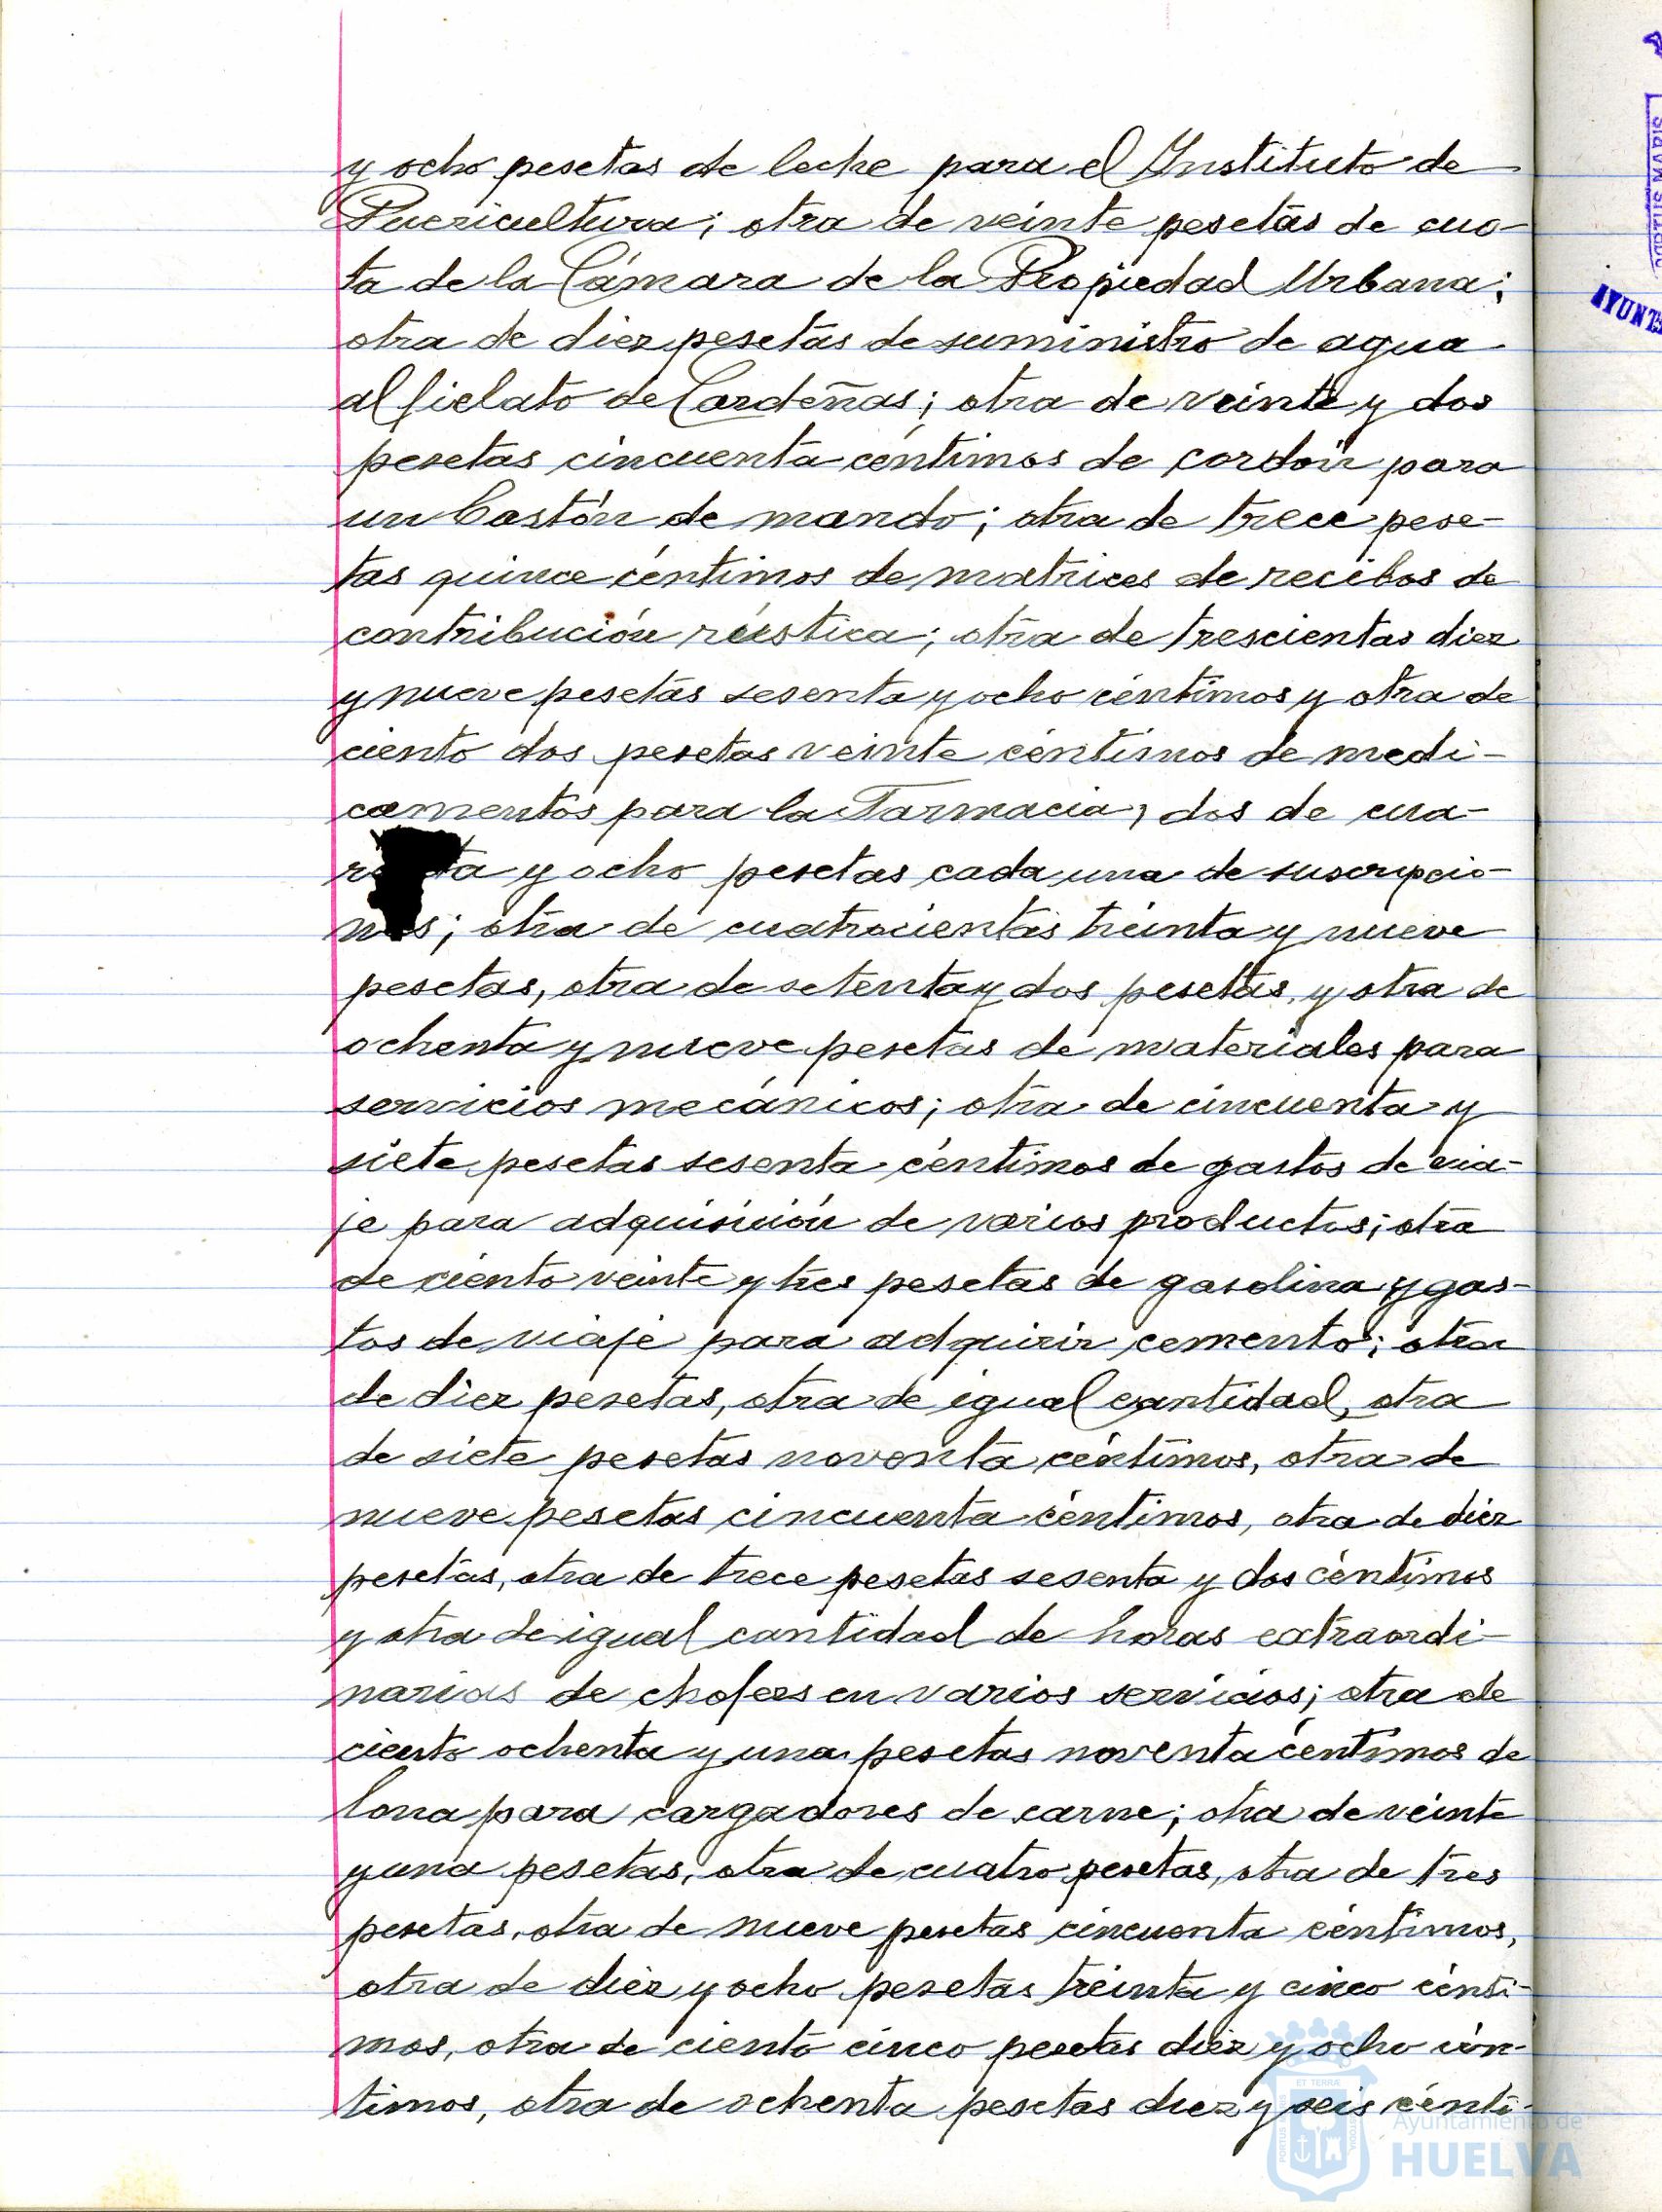 y ocho pesetas de leche para el Instituto de
Puericultura; otra de veinte pesetas de cuo-
ta de la Cámara de la Propiedad Urbana;
otra de diez pesetas de suministro de agua
al fielato de Cardeñas; otra de veinte y dos
pesetas cincuenta céntimos de cordón para
un bastón de mando; otra de trece pese-
tas quince céntimos de matrices de recibos de
contribución rústica; otra de trescientas diez
y nueve pesetas sesenta y ocho céntimos y otra de
ciento dos pesetas veinte céntimos de medi-
camentos para la Farmacia, dos de cua-
ta y ocho pesetas cada una de suscripcio-
nes; otra de cuatrocientas treinta y nueve
pesetas, otra de setenta y dos pesetas, y otra de
ochenta y nueve pesetas de materiales para
servicios mecánicos; otra de cincuenta y
siete pesetas sesenta céntimos de gastos de via-
je para adquisición de varios productos; otra
de ciento veinte y tres pesetas de gasolina y gas-
tos de viaje para adquirir cemento; otra
de diez pesetas, otra de igual cantidad, otra
de siete pesetas noventa céntimos, otra de
nueve pesetas cincuenta céntimos, otra de diez
pesetas, otra de trece pesetas sesenta y dos céntimos
y otra de igual cantidad de horas extraordi-
narias de chofers en varios servicios; otra de
ciento ochenta y una pesetas noventa céntimos de
lona para cargadores de carne; otra de veinte
y una pesetas, otra de cuatro pesetas, otra de tres
pesetas, otra de nueve pesetas cincuenta céntimos,
otra de diez y ocho pesetas treinta y cinco cénti-
mos, otra de ciento cinco pesetas diez y ocho cén-
timos, otra de ochenta pesetas diez y seis cénti-
PORTUS MARIS
AYUNT
ET TERRA
Ayuntamiento de
HUELVA